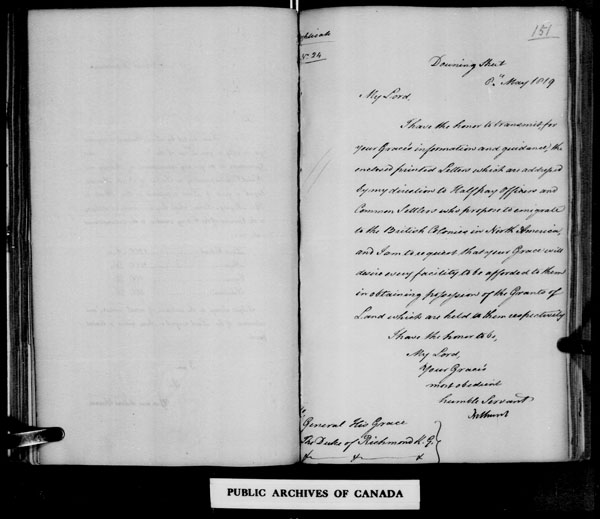 151
plicate
No 24
Downing Street
8th May 1819
My Lord,
I have the honor to transmit for
your Grace's information and guidance, the
enclosed printed Letters which are addressed
by my direction to Half pay Officers and
Common Settlers who propose to emigrate
to the British Colonies in North America,
and I am to request that your Grace will
desire every facility to be afforded to them
in obtaining possession of the Grants of
Land which are held to them respectively
I have the honor to be,
My Lord,
Your Grace's
most obedient
humble Servant
Bathurst
General His Grace
The Duke of Richmond K.G.
PUBLIC ARCHIVES OF CANADA